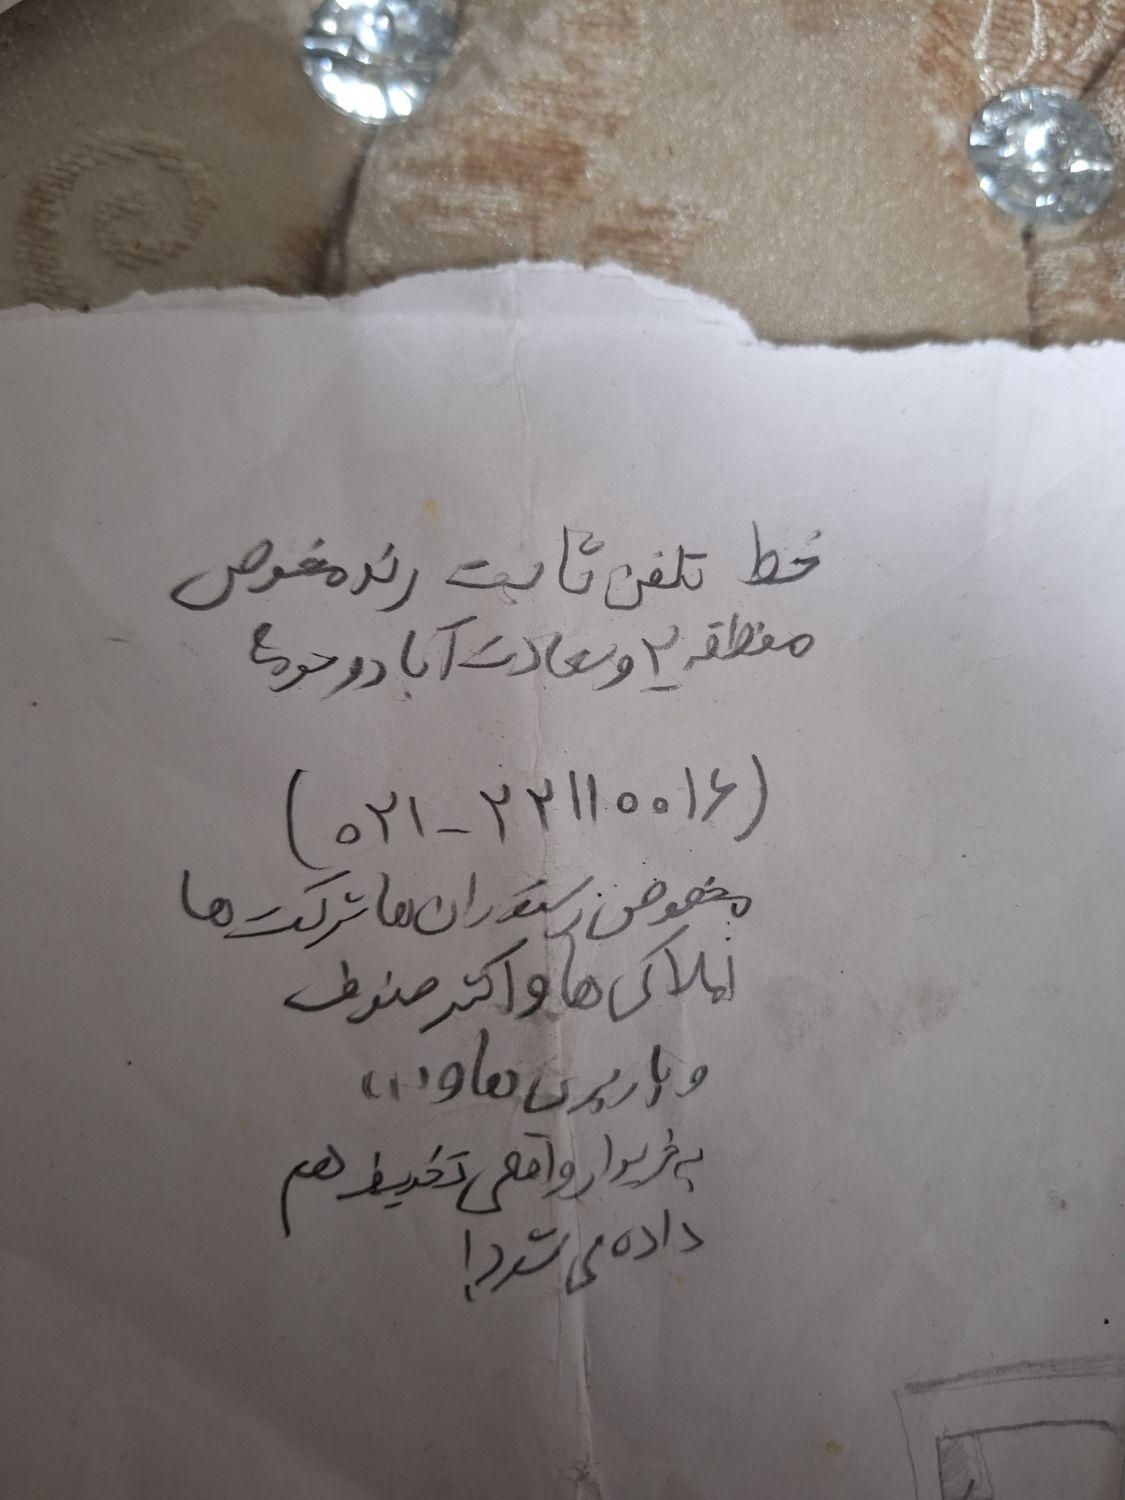 خط تلفن ثابت رند مخصوص
منطقه ۲ و سعادت آباد و حومه
(۰۲۱-۲۲۱۱۰۰۱۶)
مخصوص رستوران ها شرکت ها
املاکی ها و اکثر صنوف
و باربری ها و ...
به خریدار واقعی تخفیف هم
داده می شود!